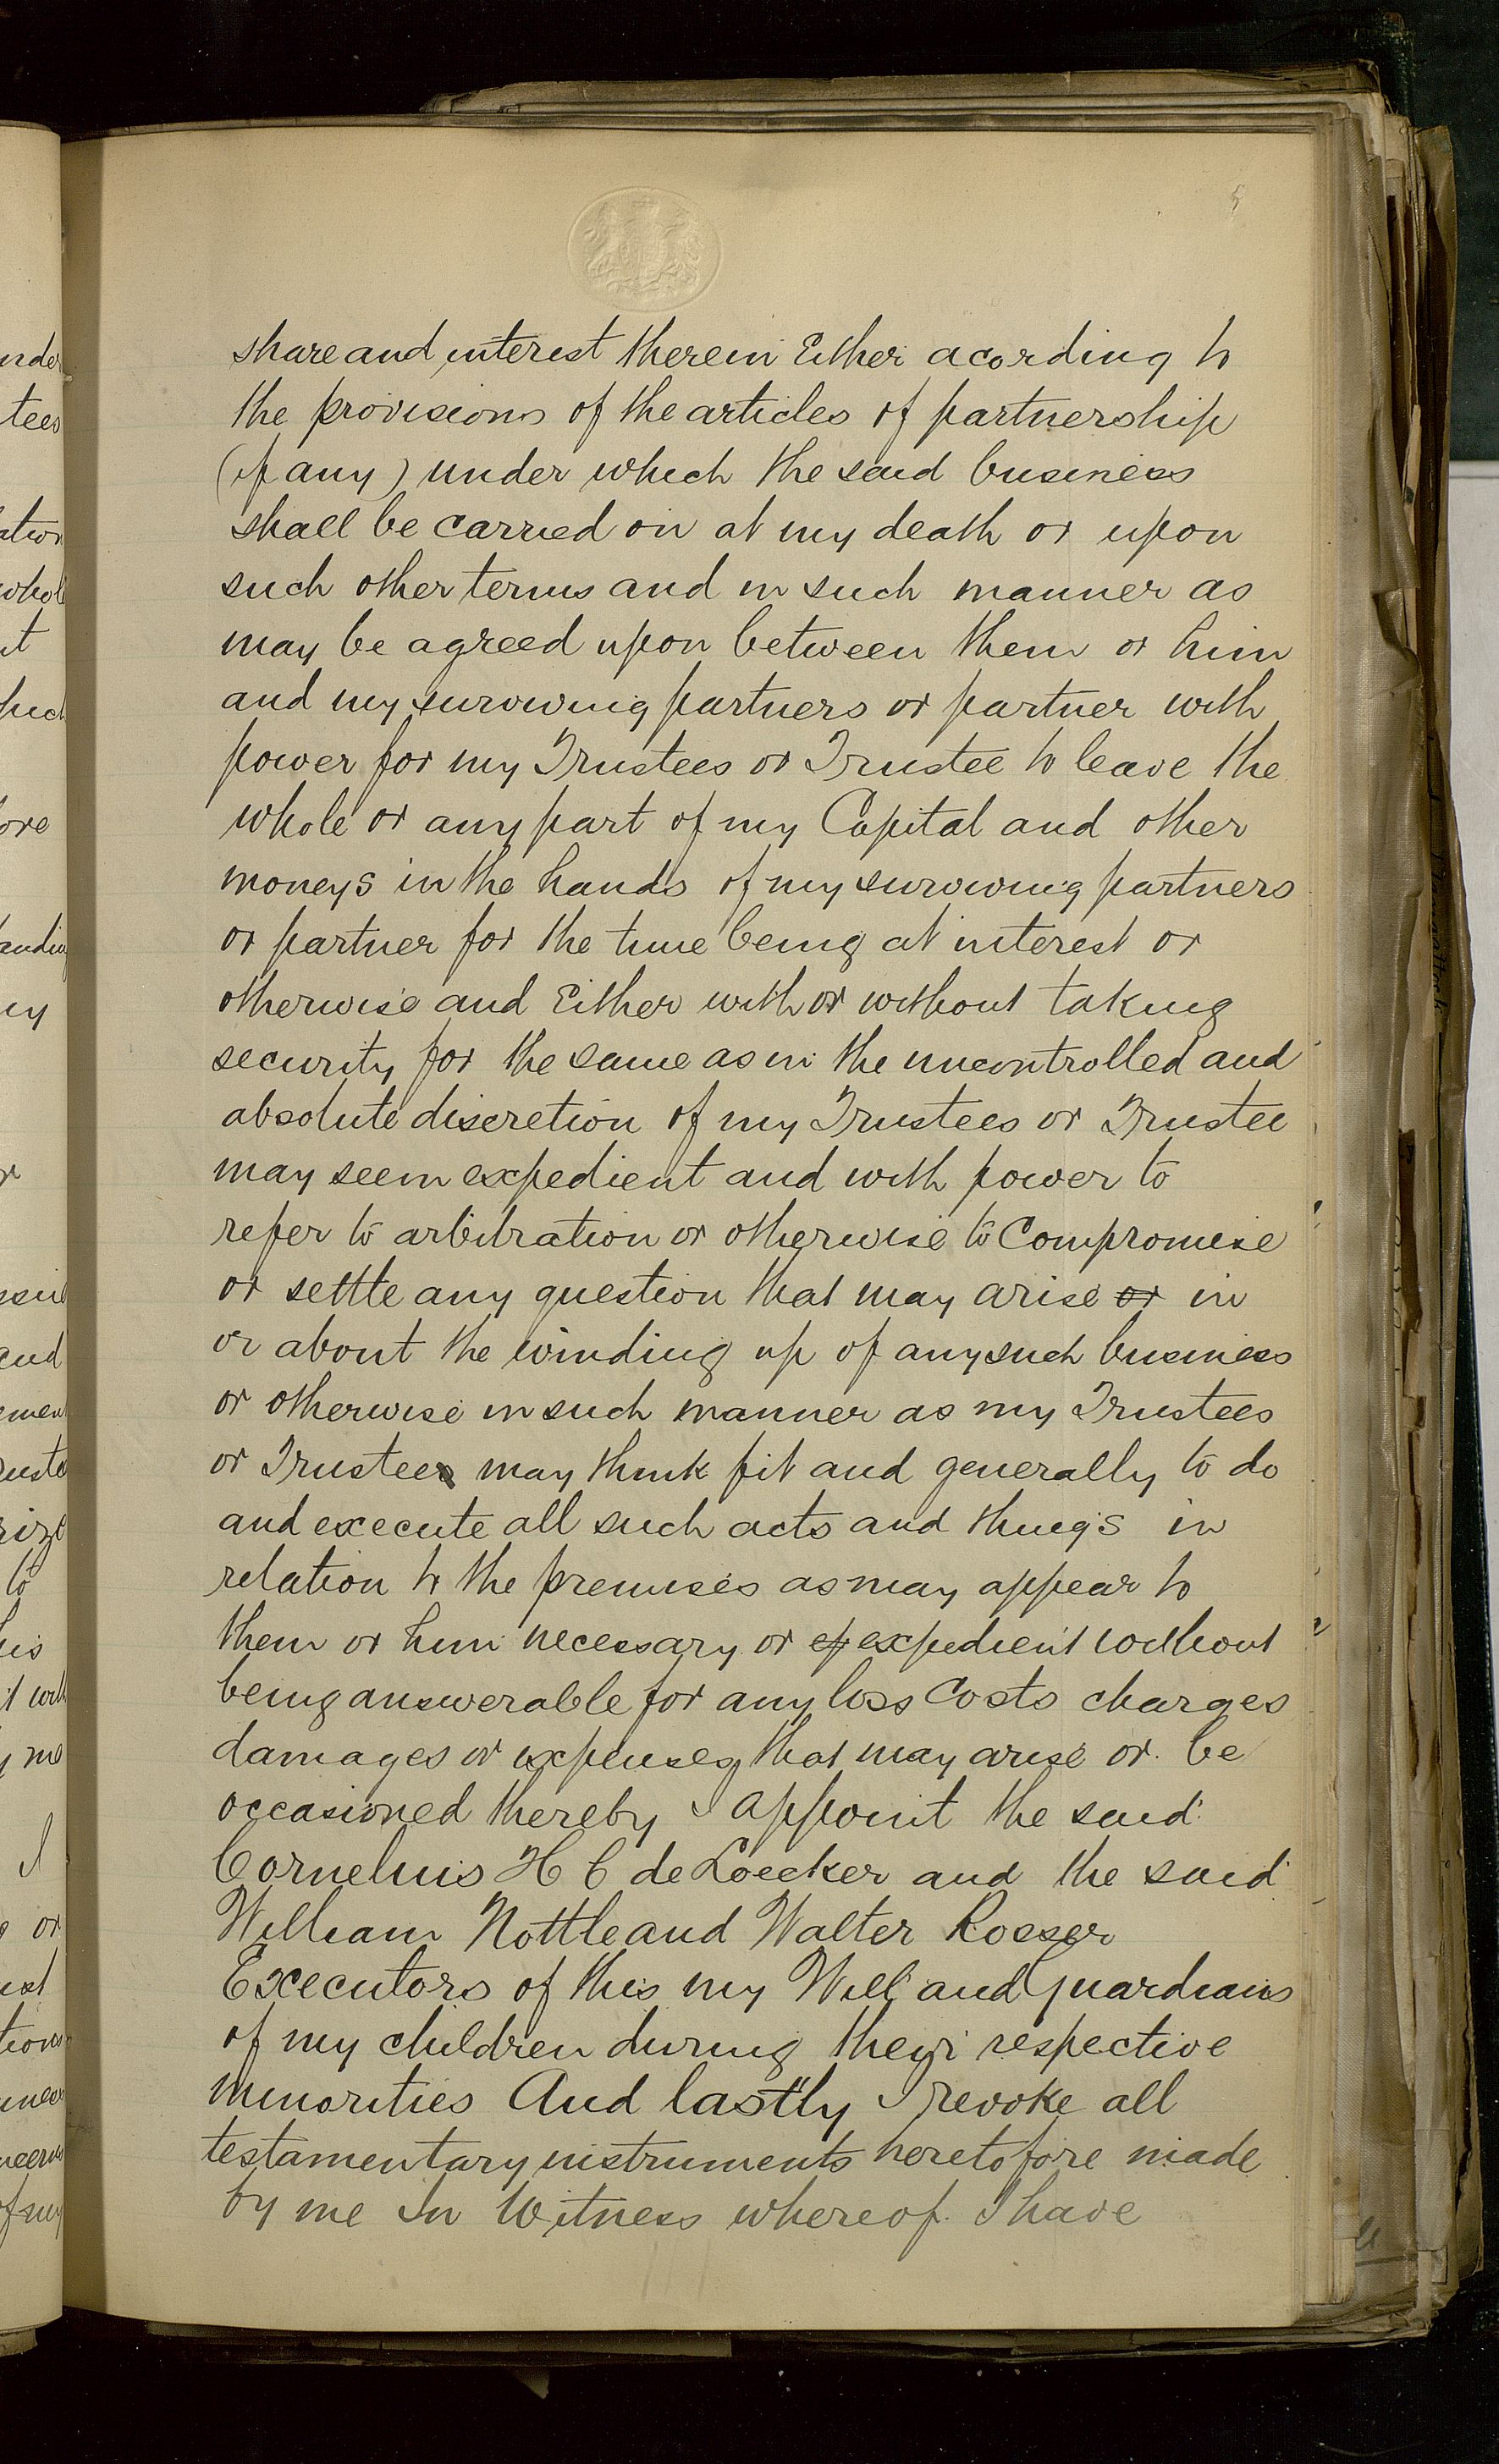 share and interest therein Either acording to
the provisions of the articles of partnership
(if any) under which the said business
shall be carried on at my death or upon
such other terms and in such manner as
may be agreed upon between them or him
and my surviving partners or partner with
power for my Trustees or Trustee to leave the
whole or any part of my Capital and other
moneys in the hands of my surviving partners
or partner for the time being at interest or
otherwise and Either with or without taking
security for the same as in the uncontrolled and
absolute discretion of my Trustees or Trustee
may seem expedient and with power to
refer to arbitration or otherwise to Compromise
or settle any question that may arise or in
or about the winding up of any such business
or otherwise in such manner as my Trustees
or Trustees may think fit and generally to do
and execute all such acts and things in
relation to the premises as may appear to
them or him necessary or ep expedient without
being answerable for any loss Costs charges
damages or expenses that may arise or be
occasioned thereby I appoint the said
Cornelius H C de Loecker and the said
William Nottle and Walter Rosser
Executors of this my Will and Guardians
of my children during their respective
minorities And lastly I revoke all
testamentary instruments heretofore made
by me In Witness whereof I have